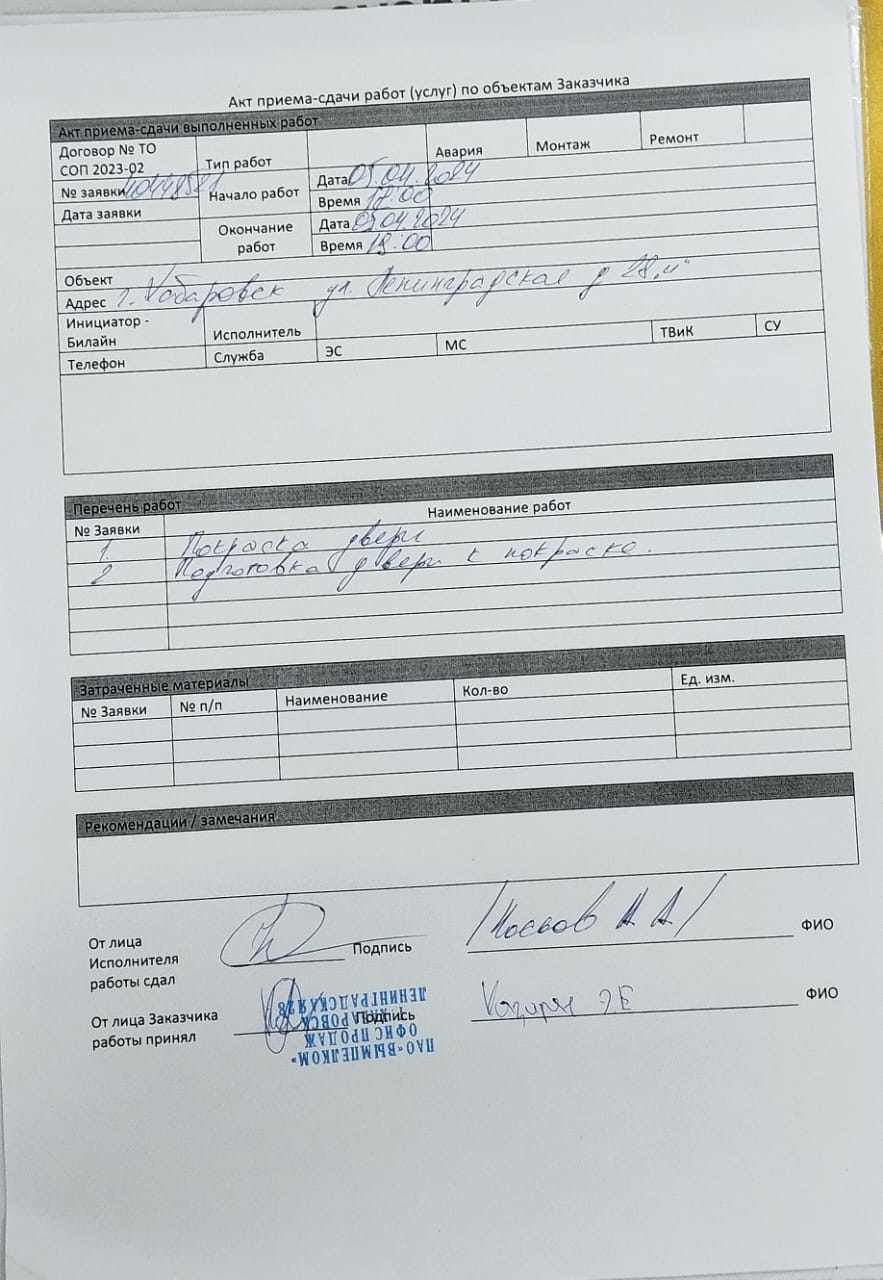 Акт приема-сдачи работ (услуг) по объектам Заказчика
Акт приема-сдачи выполненных работ
Договор № ТО
СОП 2023-02
Тип работ
Авария
Монтаж
Ремонт
№ заявки
Начало работ
Дата 05.04.2024
Время
Дата заявки
Окончание
работ
Дата 05.04.2024
Время 19:00
Объект
Адрес г. Хабаровск ул. Ленинградская д 28 „и"
Инициатор -
Билайн
Исполнитель
Телефон
Служба
ЭС
МС
ТВиК
СУ
Перечень работ
№ Заявки
Наименование работ
1. Покраска двери
2 Подготовка двери к покраске.
Затраченные материалы
№ Заявки
№ п/п
Наименование
Кол-во
Ед. изм.
Рекомендации / замечания
От лица
Исполнителя
работы сдал
Подпись
ФИО
От лица Заказчика
работы принял
Подпись
ФИО
ПАО «ВЫМПЕЛКОМ»
ОФИС ПРОДАЖ
Г. ХАБАРОВСК
ЛЕНИНГРАДСКАЯ 28